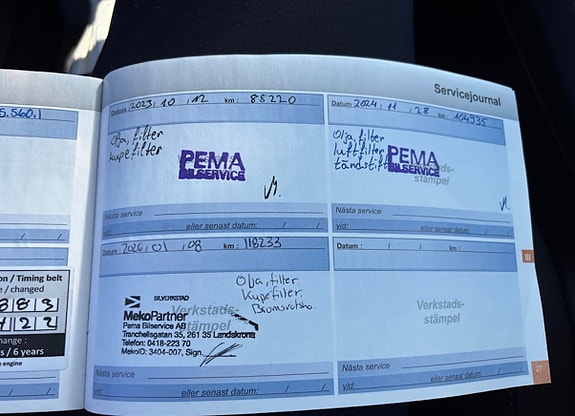 5.560.1
Servicejournal
Datum: 2023, 10, 12 km: 88220
Olja, filter
Kupefilter
PEMA
BILSERVICE
Nästa service
vid: eller senast datum: / /
Datum: 2024, 11, 28 km: 104935
Olja, filter
luftfilter
tändstift
PEMA
BILSERVICE
stämpel
Nästa service
vid: eller senast datum: / /
Datum: 2026, 01, 08 km: 118233
Olja, filter
Kupefilter.
BILVERKSTAD
MekoPartner
Verkstads-
stämpel
Pema Bilservice AB
Tranchellsgatan 35, 261 35 Landskrona
Telefon: 0418-223 70
MekoID: 3404-007, Sign
Nästa service
vid: eller senast datum: / /
Datum: / / km:
Verkstads-
stämpel
Nästa service
vid: eller senast datum: / /
on / Timing belt
e / changed
8 8 3
1 2 2
hange :
s / 6 years
e engine
III
27